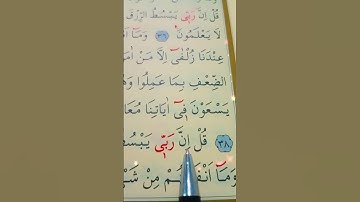 قُلْ اِنَّ رَبّٖى يَبْسُطُ الرِّزْقَ
لَا يَعْلَمُونَ ﴿٣٦﴾ وَمَٓا
عِنْدَنَا زُلْفٰٓى اِلَّا مَنْ اٰمَنَ
الضِّعْفِ بِمَا عَمِلُوا وَهُمْ
يَسْعَوْنَ فٖٓى اٰيَاتِنَا مُعَا
﴿٣٨﴾ قُلْ اِنَّ رَبّٖى يَبْسُطُ
وَمَٓا اَنْفَقْتُمْ مِنْ شَىْ